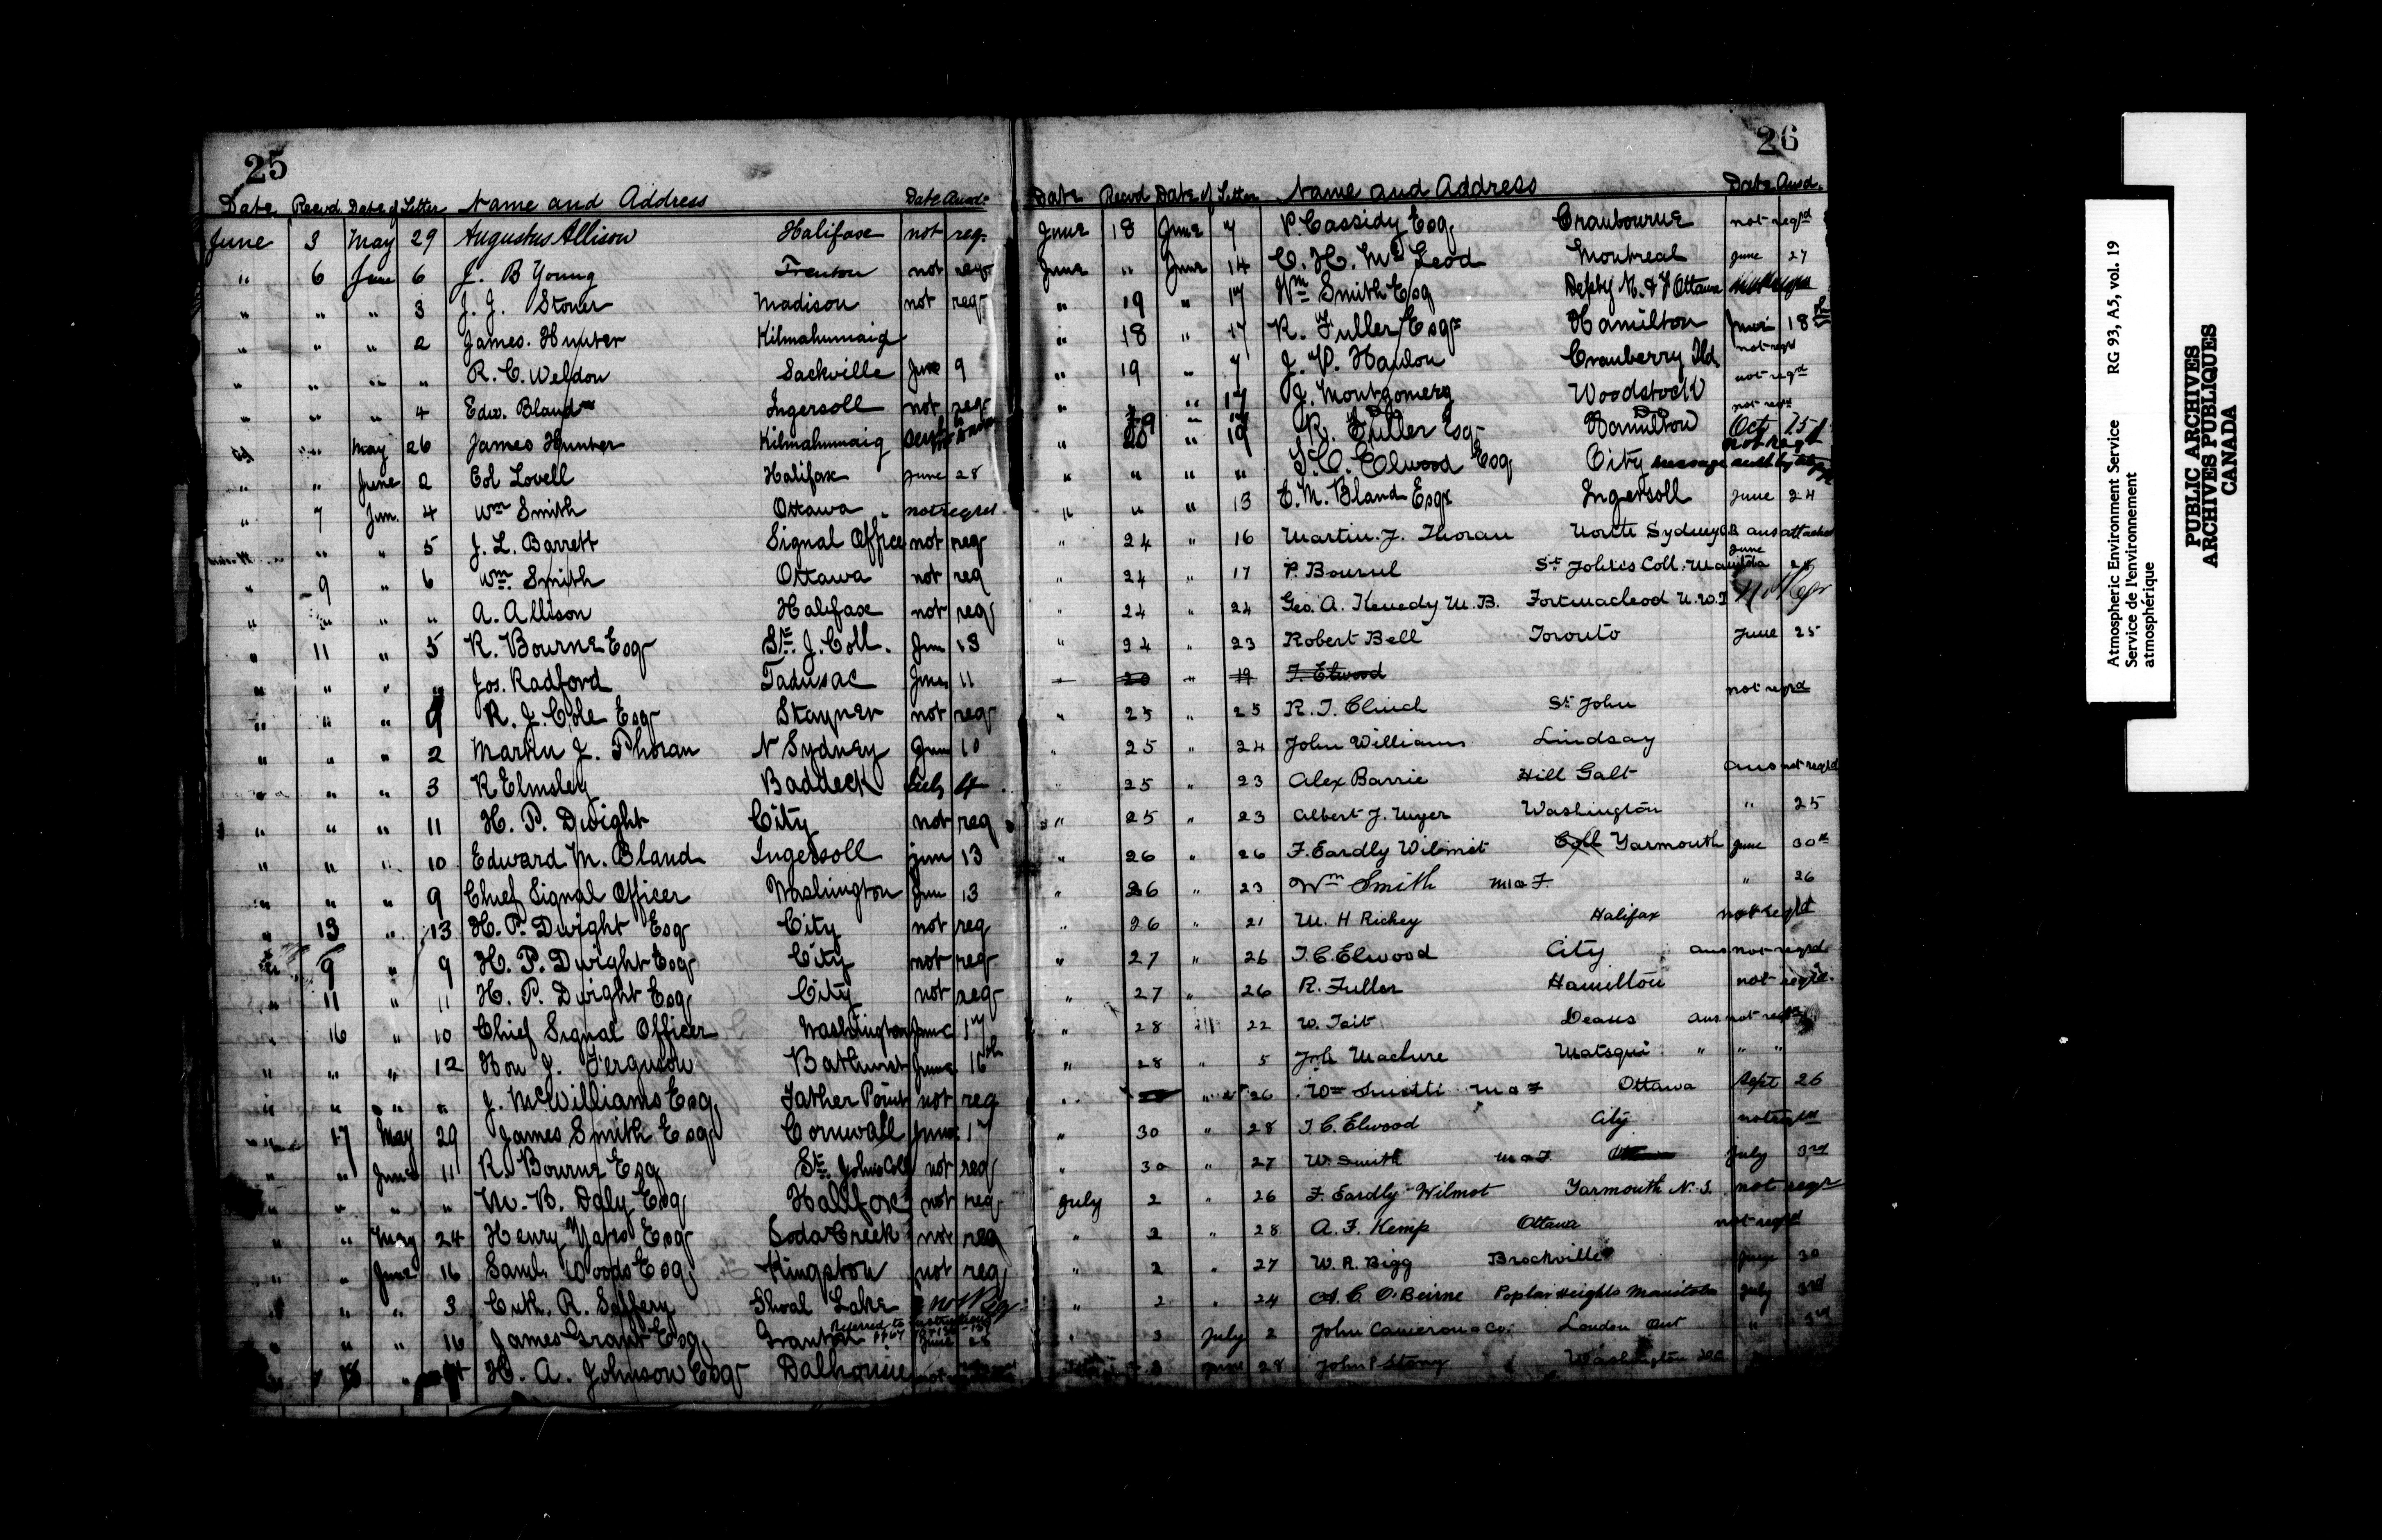 25
Date Recvd Date of Letter Name and Address Date Ansd.
June 3 May 29 Augustus Allison Halifax not req.
" 6 June 6 J. B Young Trenton not req
" " " 3 J. J. Stoner Madison not req
" " " 2 James. Hunter Kilmahumaig
" " " " R. C. Weldon Sackville June 9
" " " 4 Edw. Bland Ingersoll not req
" " May 26 James Hunter Kilmahumaig
" " June 2 Col Lovell Halifax June 28
" 7 Jun. 4 Wm Smith Ottawa not reqrd
" " " 5 J. L. Barrett Signal Office not req
" 9 " 6 Wm. Smith Ottawa not req
" " " " A. Allison Halifax not req
" 11 " 5 R. Bourne Esq St. J. Coll. Jun 13
" " " " Jos. Radford Tadusac June 11
" " " 9 R. J. Cole Esq Stayner not req
" " " 2 Martin J. Phoran N Sydney Jun 10
" " " 3 R Elmsley Baddeck July 4
" " " 11 H. P. Dwight City not req
" " " 10 Edward M. Bland Ingersoll jun 13
" " " 9 Chief Signal Officer Washington Jun 13
" 13 " 13 H. P. Dwight Esq City not req
" 9 " 9 H. P. Dwight Esq City not req
" 11 " 11 H. P. Dwight Esq City not req
" 16 " 10 Chief Signal Officer Washington June 17
" " " 12 Hon J. Ferguson Bathurst June 16th
" " " " J. McWilliams Esq Father Point not req
" 17 May 29 James Smith Esq Cornwall June 17
" " June 11 R. Bourne Esq St. Johns Coll not req
" " " " M. B. Daly Esq Halifax not req
" " May 24 Henry Esq Soda Creek not req
" " June 16 Saml. Woods Esq Kingston not req
" " " 3 Cuth. R. Shoal Lake not Req
" " " 16 James Grant Esq Granton June 28
" 18 " H. A. Johnson Esq Dalhousie not
26
Date Recvd Date of Letter Name and Address Date Ansd.
June 18 June 7 P. Cassidy Esq Cranbourne not reqd
June " June 14 C. H. McLeod Montreal June 27
" 19 " 17 Wm Smith Esq Depty M. & F Ottawa
" 18 " 17 R. Fuller Esqr Hamilton June 18th
" 19 " 7 J. P. Hanlon Cranberry Ild not reqd
" " " 17 J. Montgomery Woodstock not reqd
" 20 " 19 R. Fuller Esq Hamilton Oct 15
" " " " T. C. Elwood Esq City message
" " " 13 E. M. Bland Esqr Ingersoll June 24
" 24 " 16 Martin. J. Phoran North Sydney C.B ans attached
" 24 " 17 P. Bournl St. John's Coll. Manitoba June
" 24 " 24 Geo. A. Kenedy M. B. Fort Macleod N. W. T Not Reqr
" 24 " 23 Robert Bell Toronto June 25
" 20 " 19 T. Elwood
" 25 " 25 R. T. Clinch St John not reqrd
" 25 " 24 John Williams Lindsay
" 25 " 23 Alex Barrie Hill Galt ans not reqrd
" 25 " 23 Albert J. Myer Washington " 25
" 26 " 26 F. Eardly Wilmot Coll Yarmouth June 30th
" 26 " 23 Wm Smith M & F. " 26
" 26 " 21 M. H Richey Halifax not reqrd
" 27 " 26 T. C. Elwood City ans not reqrd
" 27 " 26 R. Fuller Hamilton not reqrd.
" 28 " 22 W. Tait Deans ans not reqrd
" 28 " 5 Joh Maclure Matsqui " " "
" " 26 Wm Smith M & F Ottawa Sept 26
" 30 " 28 T. C. Elwood City not reqrd
" 30 " 27 W. Smith M & F. July 3rd
July 2 " 26 F. Eardly Wilmot Yarmouth N. S. not reqr
" 2 " 28 A. F. Kemp Ottawa not reqrd
" 2 " 27 W. R. Bigg Brockville June 30
" 2 " 24 A. C. O'Beirne Poplar Heights Manitoba July 3rd
" 3 July 2 John Cameron & Co. London Ont " 3rd
" 3 June 28 John P Story Washington
Atmospheric Environment Service RG 93, A5, vol. 19
Service de l'environnement
atmosphérique
PUBLIC ARCHIVES
ARCHIVES PUBLIQUES
CANADA